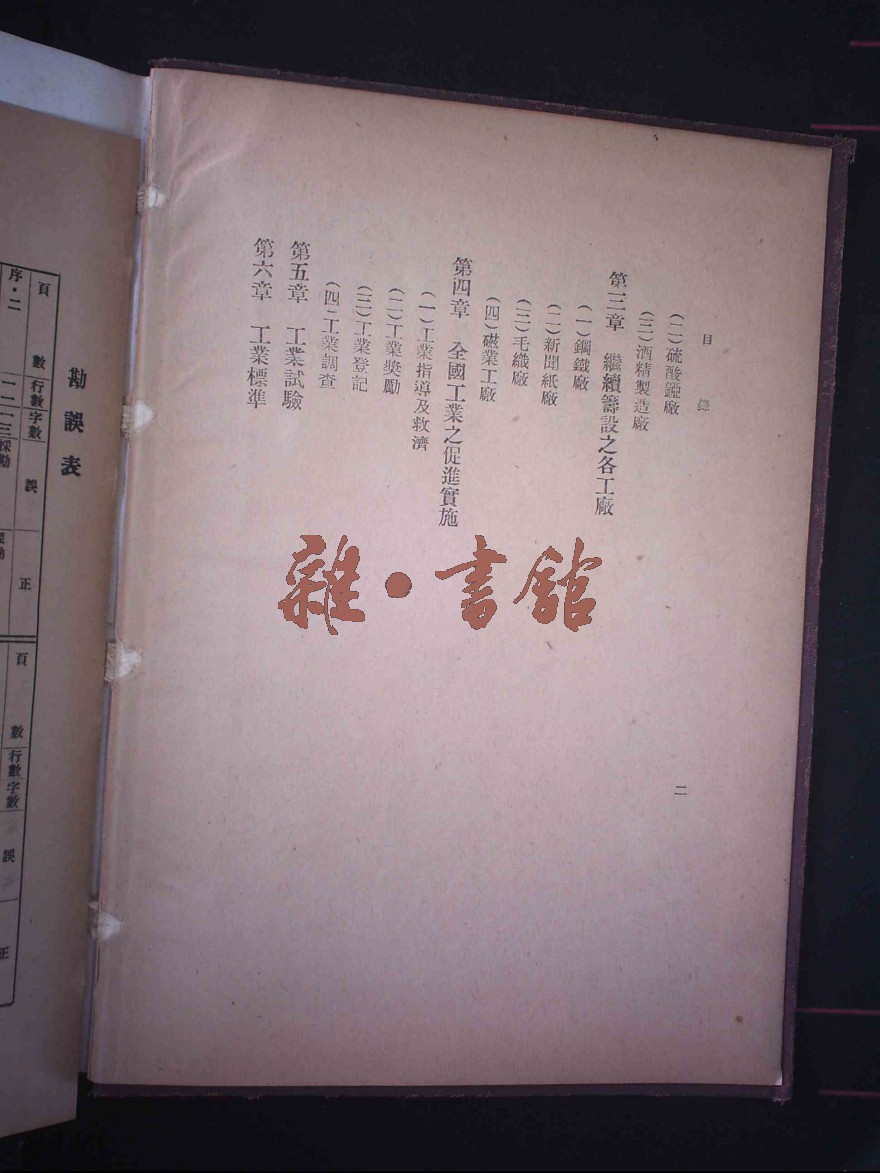 目錄
(二)硫酸錏廠
(三)酒精製造廠
第三章　繼續籌設之各工廠
(一)鋼鐵廠
(二)新聞紙廠
(三)毛織廠
(四)磁業工廠
第四章　全國工業之促進實施
(一)工業指導及救濟
(二)工業獎勵
(三)工業登記
(四)工業調查
第五章　工業試驗
第六章　工業標準
二
雜·書館
勘誤表
頁數 行數 字數 誤 正
序·二
頁數 行數 字數 誤 正